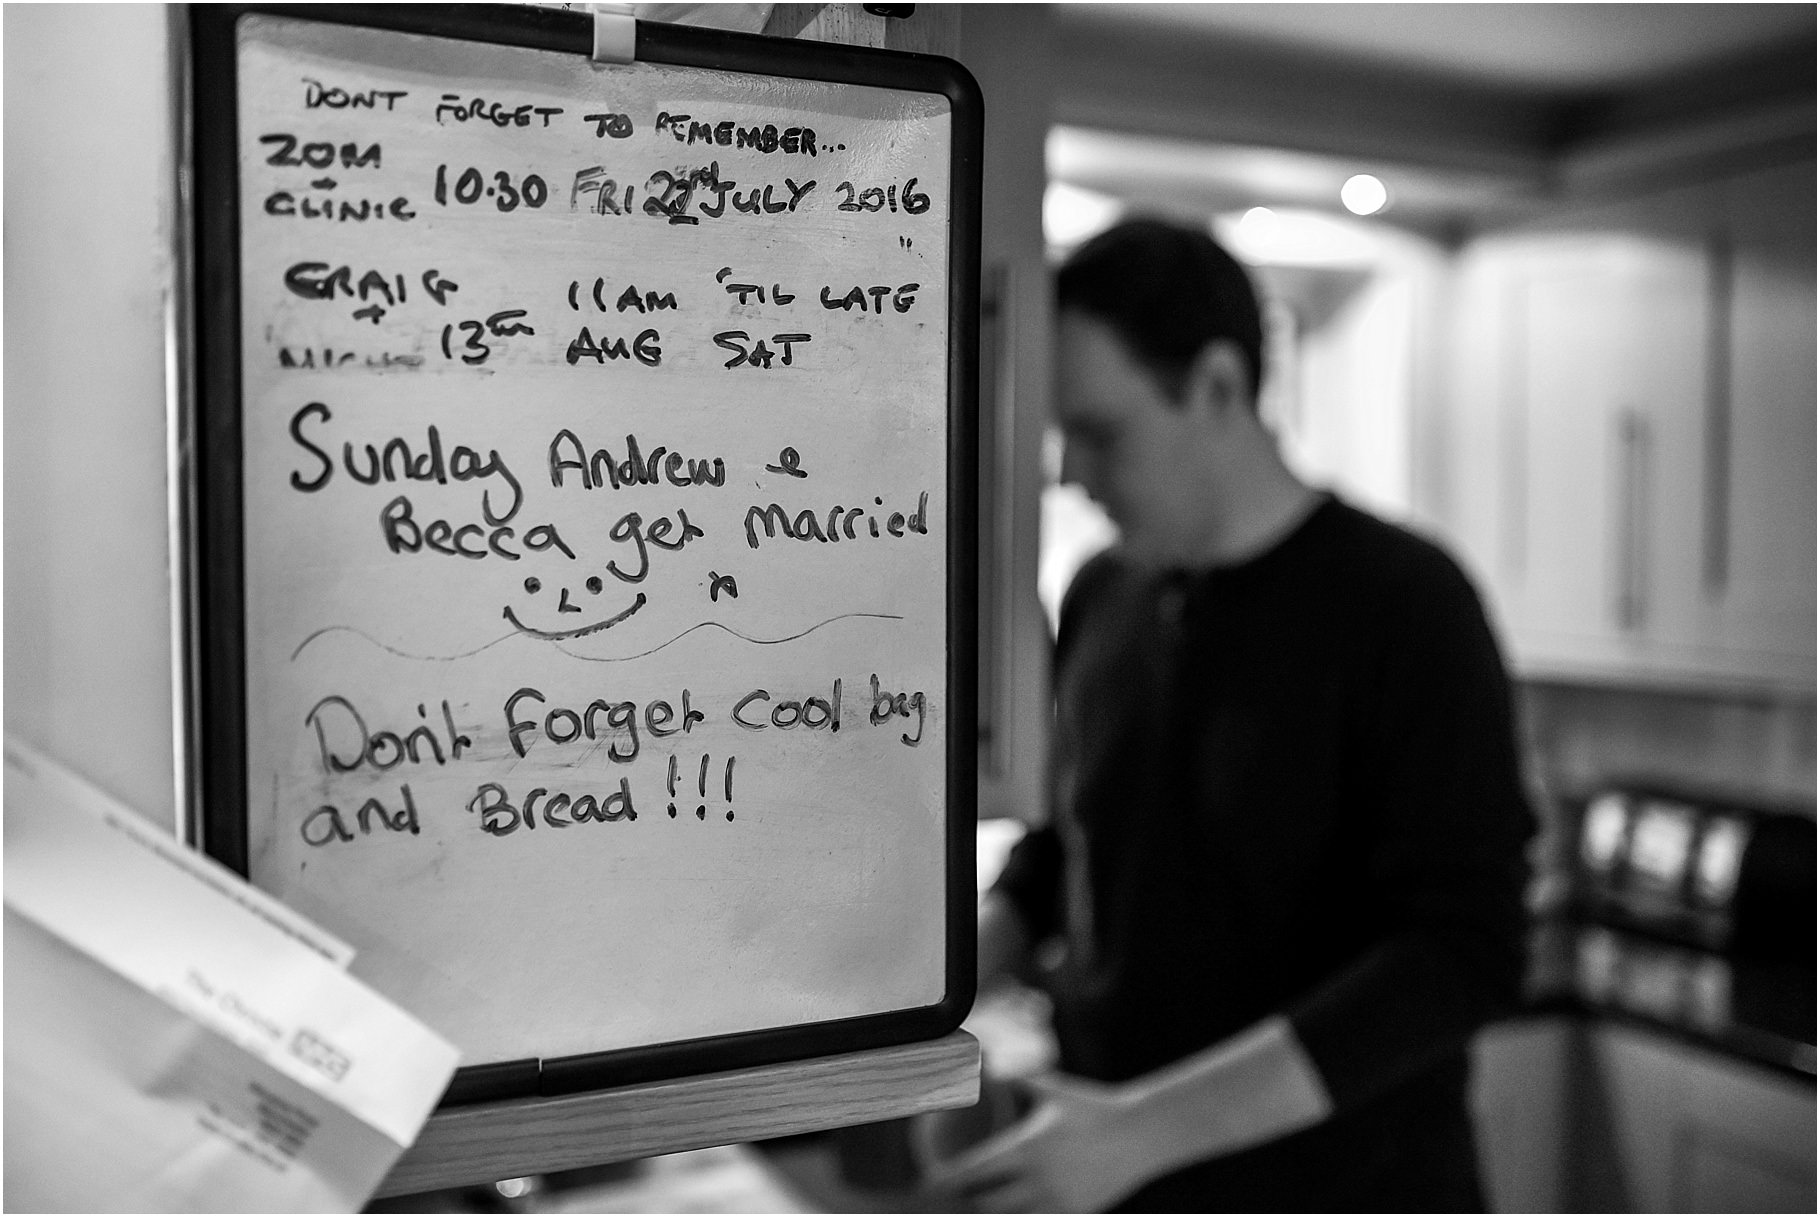 DONT FORGET TO REMEMBER...
ZOM CLINIC 10.30 FRI 22nd JULY 2016
"
CRAIG 11AM 'TIL LATE
+ 13th AUG SAT
Sunday Andrew &
Becca get married
x
Don't Forget cool bag
and Bread !!!
The Christie NHS